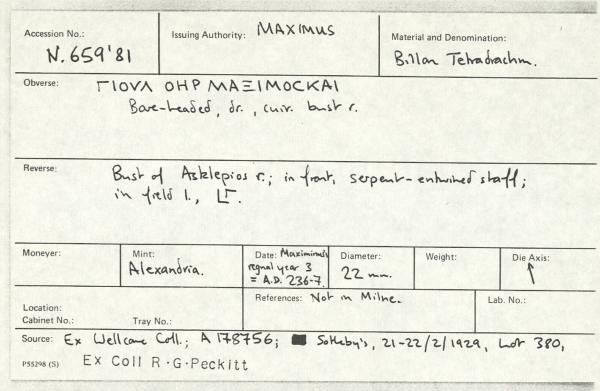 Accession No.:
N.659'81
Issuing Authority: MAXIMUS
Material and Denomination:
Billon Tetradrachm.
Obverse: ΓΙΟVΛ ΟΗΡ ΜΑΞΙΜΟCΚΑΙ
Bare-headed, dr., cuir. bust r.
Reverse: Bust of Asklepios r.; in front, serpent-entwined staff;
in field l., LΓ.
Moneyer:
Mint:
Alexandria.
Date: Maximinus
regnal year 3
= A.D. 236-7.
Diameter:
22 mm.
Weight:
Die Axis:
↑
Location:
Cabinet No.: Tray No.:
References: Not in Milne.
Lab. No.:
Source: Ex Wellcome Coll.; A 178756; Sotheby's, 21-22/2/1929, Lot 380,
P55298 (S) Ex Coll R·G·Peckitt